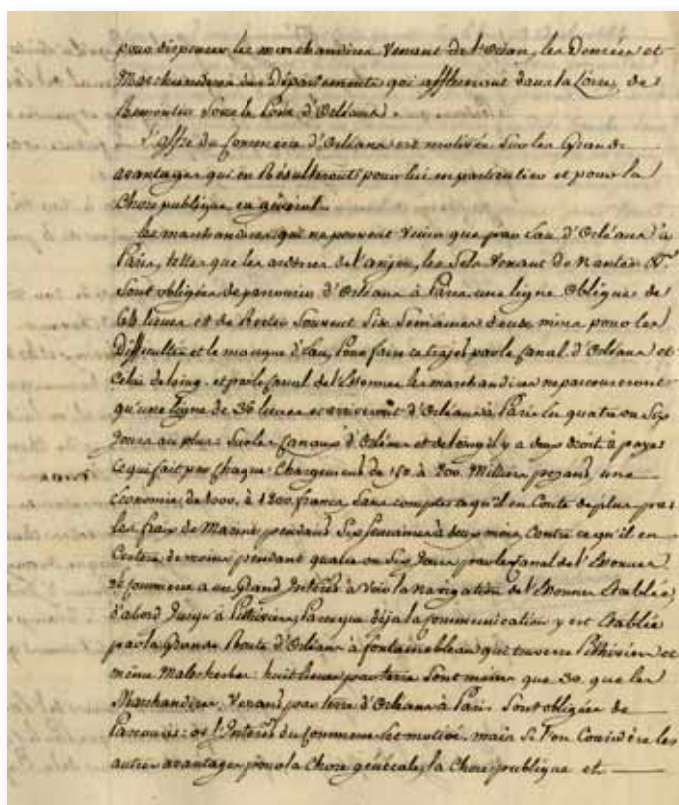 pour dispencer les marchandises Venant de l'Ocean, les Denrées et
Marchandises des Départements qui affluront dans la Loire, de
Remonter sous le Pont d'Orléans.
L'offre du Commerce d'Orléans est motivée Sur les Grands
avantages qui en Résulteront pour lui en particulier et pour la
Chose publique en général.
Les marchandises qui ne peuvent Venir que par Eau d'Orléans à
Paris, telles que les ardoises de l'anjou, les Sels Venant de Nantes &.ª
Sont obligées de parcourir d'Orléans à Paris une ligne Oblique de
lieues et de Rester Souvent Six Semaines deux mois pour les
Difficultés et le manque d'Eau, Pour faire ce trajet par le Canal d'Orléans et
Celui de loing. et par le Canal de l'Essonnes les marchandises ne parcoureront
qu'une ligne de 36 lieues et arriveront d'Orléans à Paris en quatre ou Six
Jours au plus. Sur les Canaux d'Orléans et de loing il y a deux droits à payer
ce qui fait par chaque Chargement de 150 à 200. Milliers pezant une
économie de 1000. à 1200. francs, Sans compter ce qu'il en Coute de plus pour
les frais de Marine pendant Six Semaines à deux mois, Contre ce qu'il en
Coutera de moins pendant quatre ou Six Jours par le Canal de l'Essonnes
Le Commerce a un Grand Intérêt à Voir la navigation de l'Essonnes Etablie,
d'abord Jusqu'à Pithiviers, Parceque déja la Communication y est Etablie
par la Grande Route d'Orléans à fontainebleau qui traverse Pithiviers et
même Malesherbes. huit lieues par terre Sont moins que 30. que les
Marchandises, Venant par terre d'Orléans à Paris Sont obligées de
Parcourir: or l'Intérêt du Commerce est motivé. mais Si l'on Considère les
autres avantages pour la Chose générale, la Chose publique et